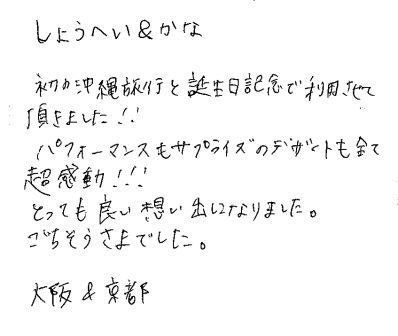 しょうへい&かな
初の沖縄旅行と誕生日記念で利用させて
頂きました!!
パフォーマンスもサプライズのデザートも全て
超感動!!!
とっても良い想い出になりました。
ごちそうさまでした。
大阪&京都